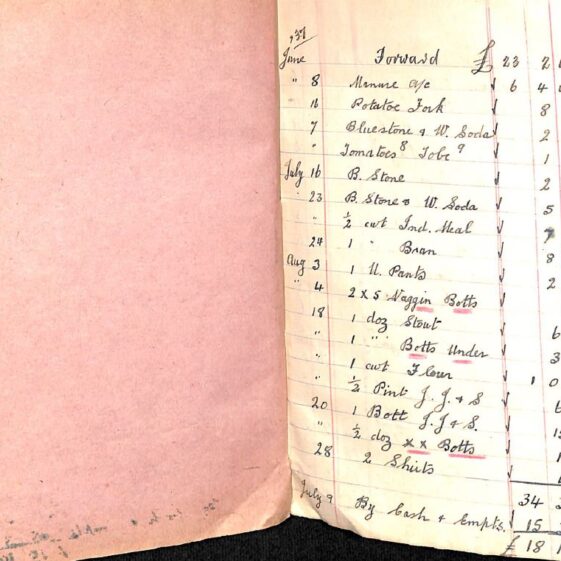 '37
June Forward £ 23 2
" 8 Manure a/c √ 6 4
16 Potatoe Fork √ 8
7 Bluestone & W. Soda √ 2
" Tomatoes 8 Tobc 9 √ 1
July 16 B. Stone √ 2
" 23 B. Stone & W. Soda √ 5
" ½ cwt Ind. Meal √ 7
24 1 " Bran √ 8
Aug 3 1 U. Pants √ 2
" 4 2 x 5 Naggin Botts √
18 1 doz Stout √ 6
" 1 " " Botts Under √ 3
" 1 cwt Flour √ 1 0
" ½ Pint J. J. & S √ 6
20 1 Bott J. J & S. √
" ½ doz x x Botts √ 1
28 2 Shirts √
34
July 9 By Cash & Empts. √ 15
£ 18